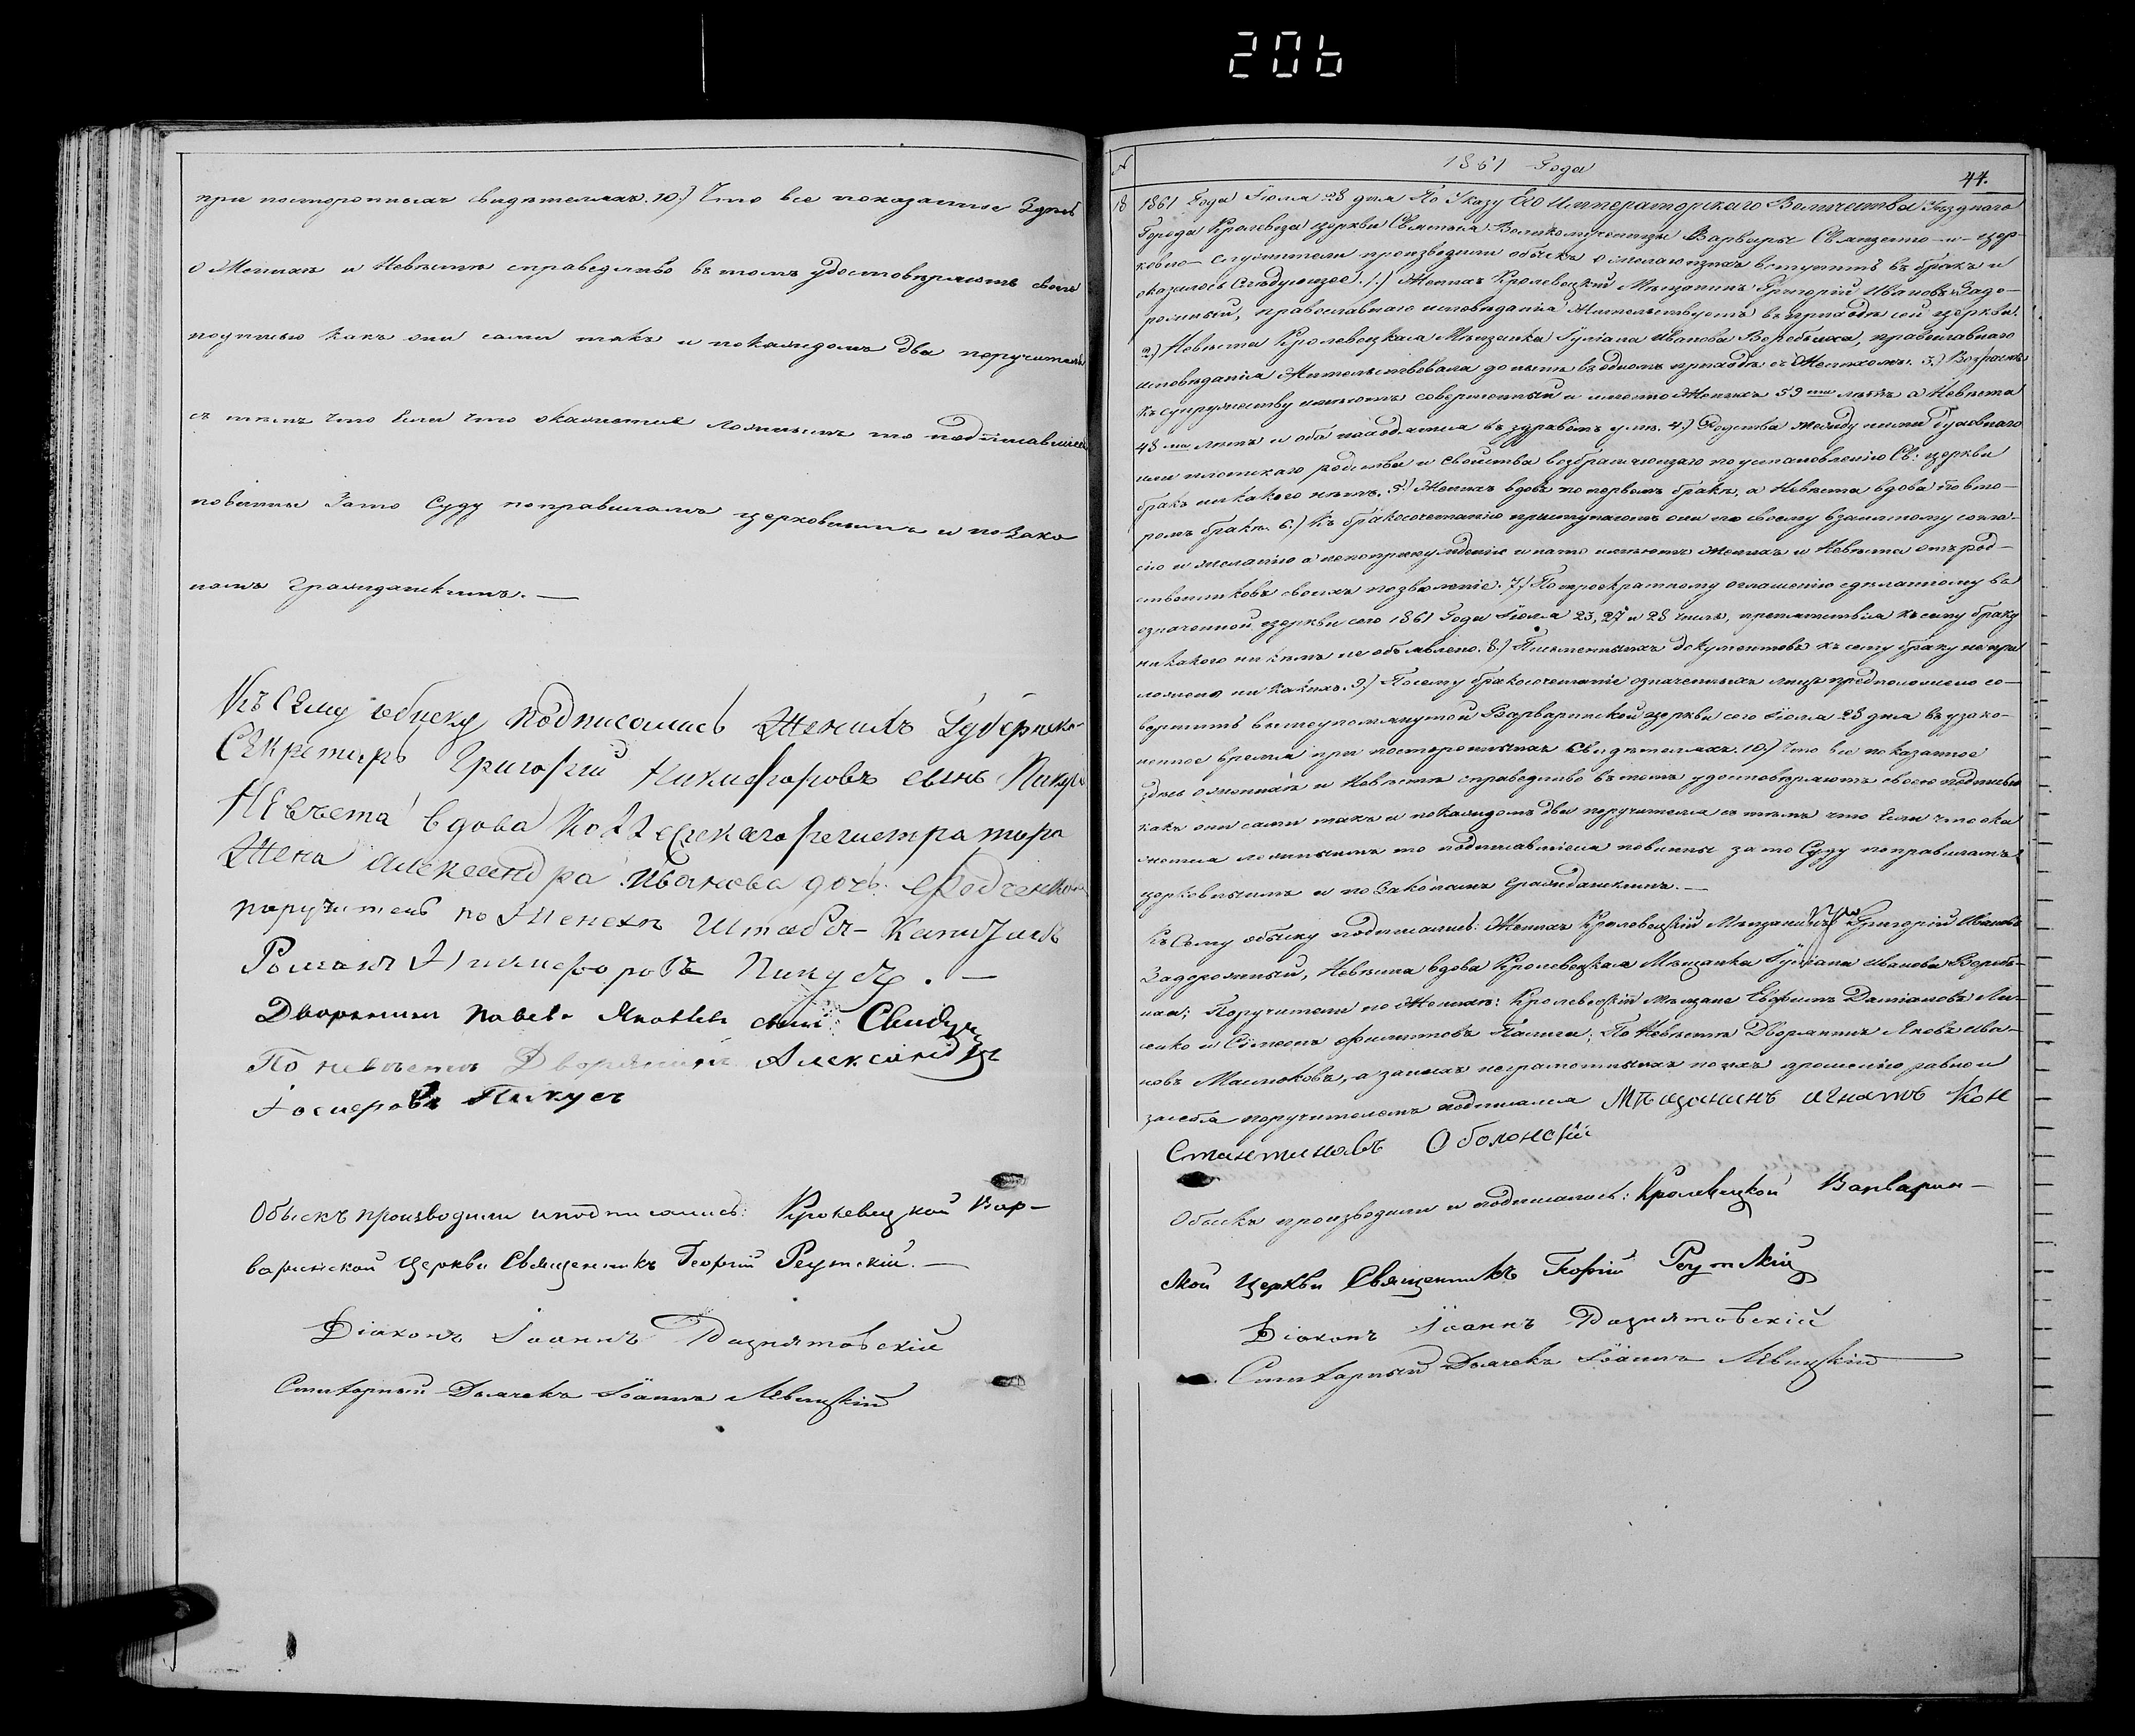 206
при постороннихъ свидѣтеляхъ. 10.) Что все показанное Здѣсь
о Женихѣ и Невѣстѣ справедливо въ томъ удостовѣряютъ своею
подписью какъ они сами такъ и покаждомъ два поручителя
съ тѣмъ что Если что окажется Ложнымъ то подписавшіеся
повинны Зато Суду поправиламъ церковнымъ и поЗако
намъ Гражданскимъ. —
Къ Сему обыску подписались Женихъ Губернскій
Секретарь Григорій Никифоровъ сынъ Пикусъ
Невѣста вдова Коллежскаго регистратора
Жена Александра Иванова дочь
поручитель по Женехѣ Штабсъ-Капитанъ
Романъ Никифоровъ Пикусъ. —
Дворянинъ Павелъ Яковлевъ сынъ
По невѣстѣ Дворянинъ Александръ
Іосифовъ Пикусъ
Обыскъ производили иподписались: Кролевецкой Вар-
варинской Церкви Священникъ Георгій Реутскій. —
Діаконъ Іоаннъ
Дьячекъ Іоаннъ Левицкій
№
1861 Года
44.
18
1861 Года Іюля 28 дня По Указу Его Императорскаго Величества Уѣзднаго
Города Кролевца церкви Святыя Великомученицы Варвары Священно-и-цер-
ковно-служители произведили обыскъ о желающихъ вступить въ бракъ и
оказалось Слѣдующее. 1.) Женихъ Кролевецкій Мѣщанинъ Григорій Ивановъ Задо-
рожный, православнаго исповѣданія Жительствуетъ въ приходѣ сей церкви.
2.) Невѣста Кролевецкая Мѣщанка Іуліана Иванова Воробьиха, православнаго
исповѣданія Жительствовала до нынѣ въ одномъ приходѣ съ Женихомъ. 3.) Возрастъ
Къ супружеству имѣютъ совершенный и именно Женихъ 59 ти лѣтъ а Невѣста
48 ми лѣтъ и оба находятся въ здравомъ умѣ. 4.) Родства между ними духовнаго
или плотскаго родства и Свойства возбраняющаго по установленію Св: церкви
бракъ никакого нѣтъ. 5.) Женихъ вдовъ по первомъ бракѣ, а Невѣста вдова по вто-
ромъ бракѣ. 6.) Къ бракосочетанію приступаютъ они по своему взаимному согла-
сію и желанію а непопринужденію и нато имѣютъ Женихъ и Невѣста отъ род-
ственниковъ своихъ позволеніе. 7.) По троекратному оглашенію сдѣланному въ
означенной церкви сего 1861 Года Іюля 23, 27 и 28 чиселъ, препятствія къ сему браку
никакого никѣмъ не объявлено. 8.) Письменныхъ документовъ къ сему браку непри
ложено ни какихъ. 9.) Посему бракосочетаніе означенныхъ лицъ предположено со-
вершить въ вышеупомянутой Варваринской церкви сего Іюля 28 дня въ узако-
ненное время при постороннихъ Свидѣтеляхъ. 10.) Что все показанное
здѣсь о женихѣ и Невѣстѣ справедливо въ томъ удостовѣряютъ своею подписью
какъ они сами такъ и покаждомъ два поручителя съ тѣмъ что Если что ока
жется ложнымъ то подписавшіеся повинны за то Суду поправиламъ
церковнымъ и по Законамъ Гражданскимъ. —
Къ Сему обыску подписались: Женихъ Кролевецкій Мѣщанинъ Григорій Ивановъ
Задорожный, Невѣста вдова Кролевецкая Мѣщанка Іуліана Иванова Воробь-
иха; Поручители по Женихѣ: Кролевецкіе Мѣщане Евфимъ Даміановъ Ли-
сенко и Симеонъ Филиповъ Палига; По Невѣстѣ Дворянинъ Яковъ Ива-
новъ Маслюковъ, а заихъ неграмотныхъ по ихъ прошенію равно и
засебя поручителемъ подписался Мѣщанинъ Игнатъ Кон
стантиновъ Оболонскій
Обыскъ производили и подписались: Кролевецкой Варварин-
ской Церкви Священникъ Георгій Реутскій
Діаконъ Іоаннъ
Дьячекъ Іоаннъ Левицкій